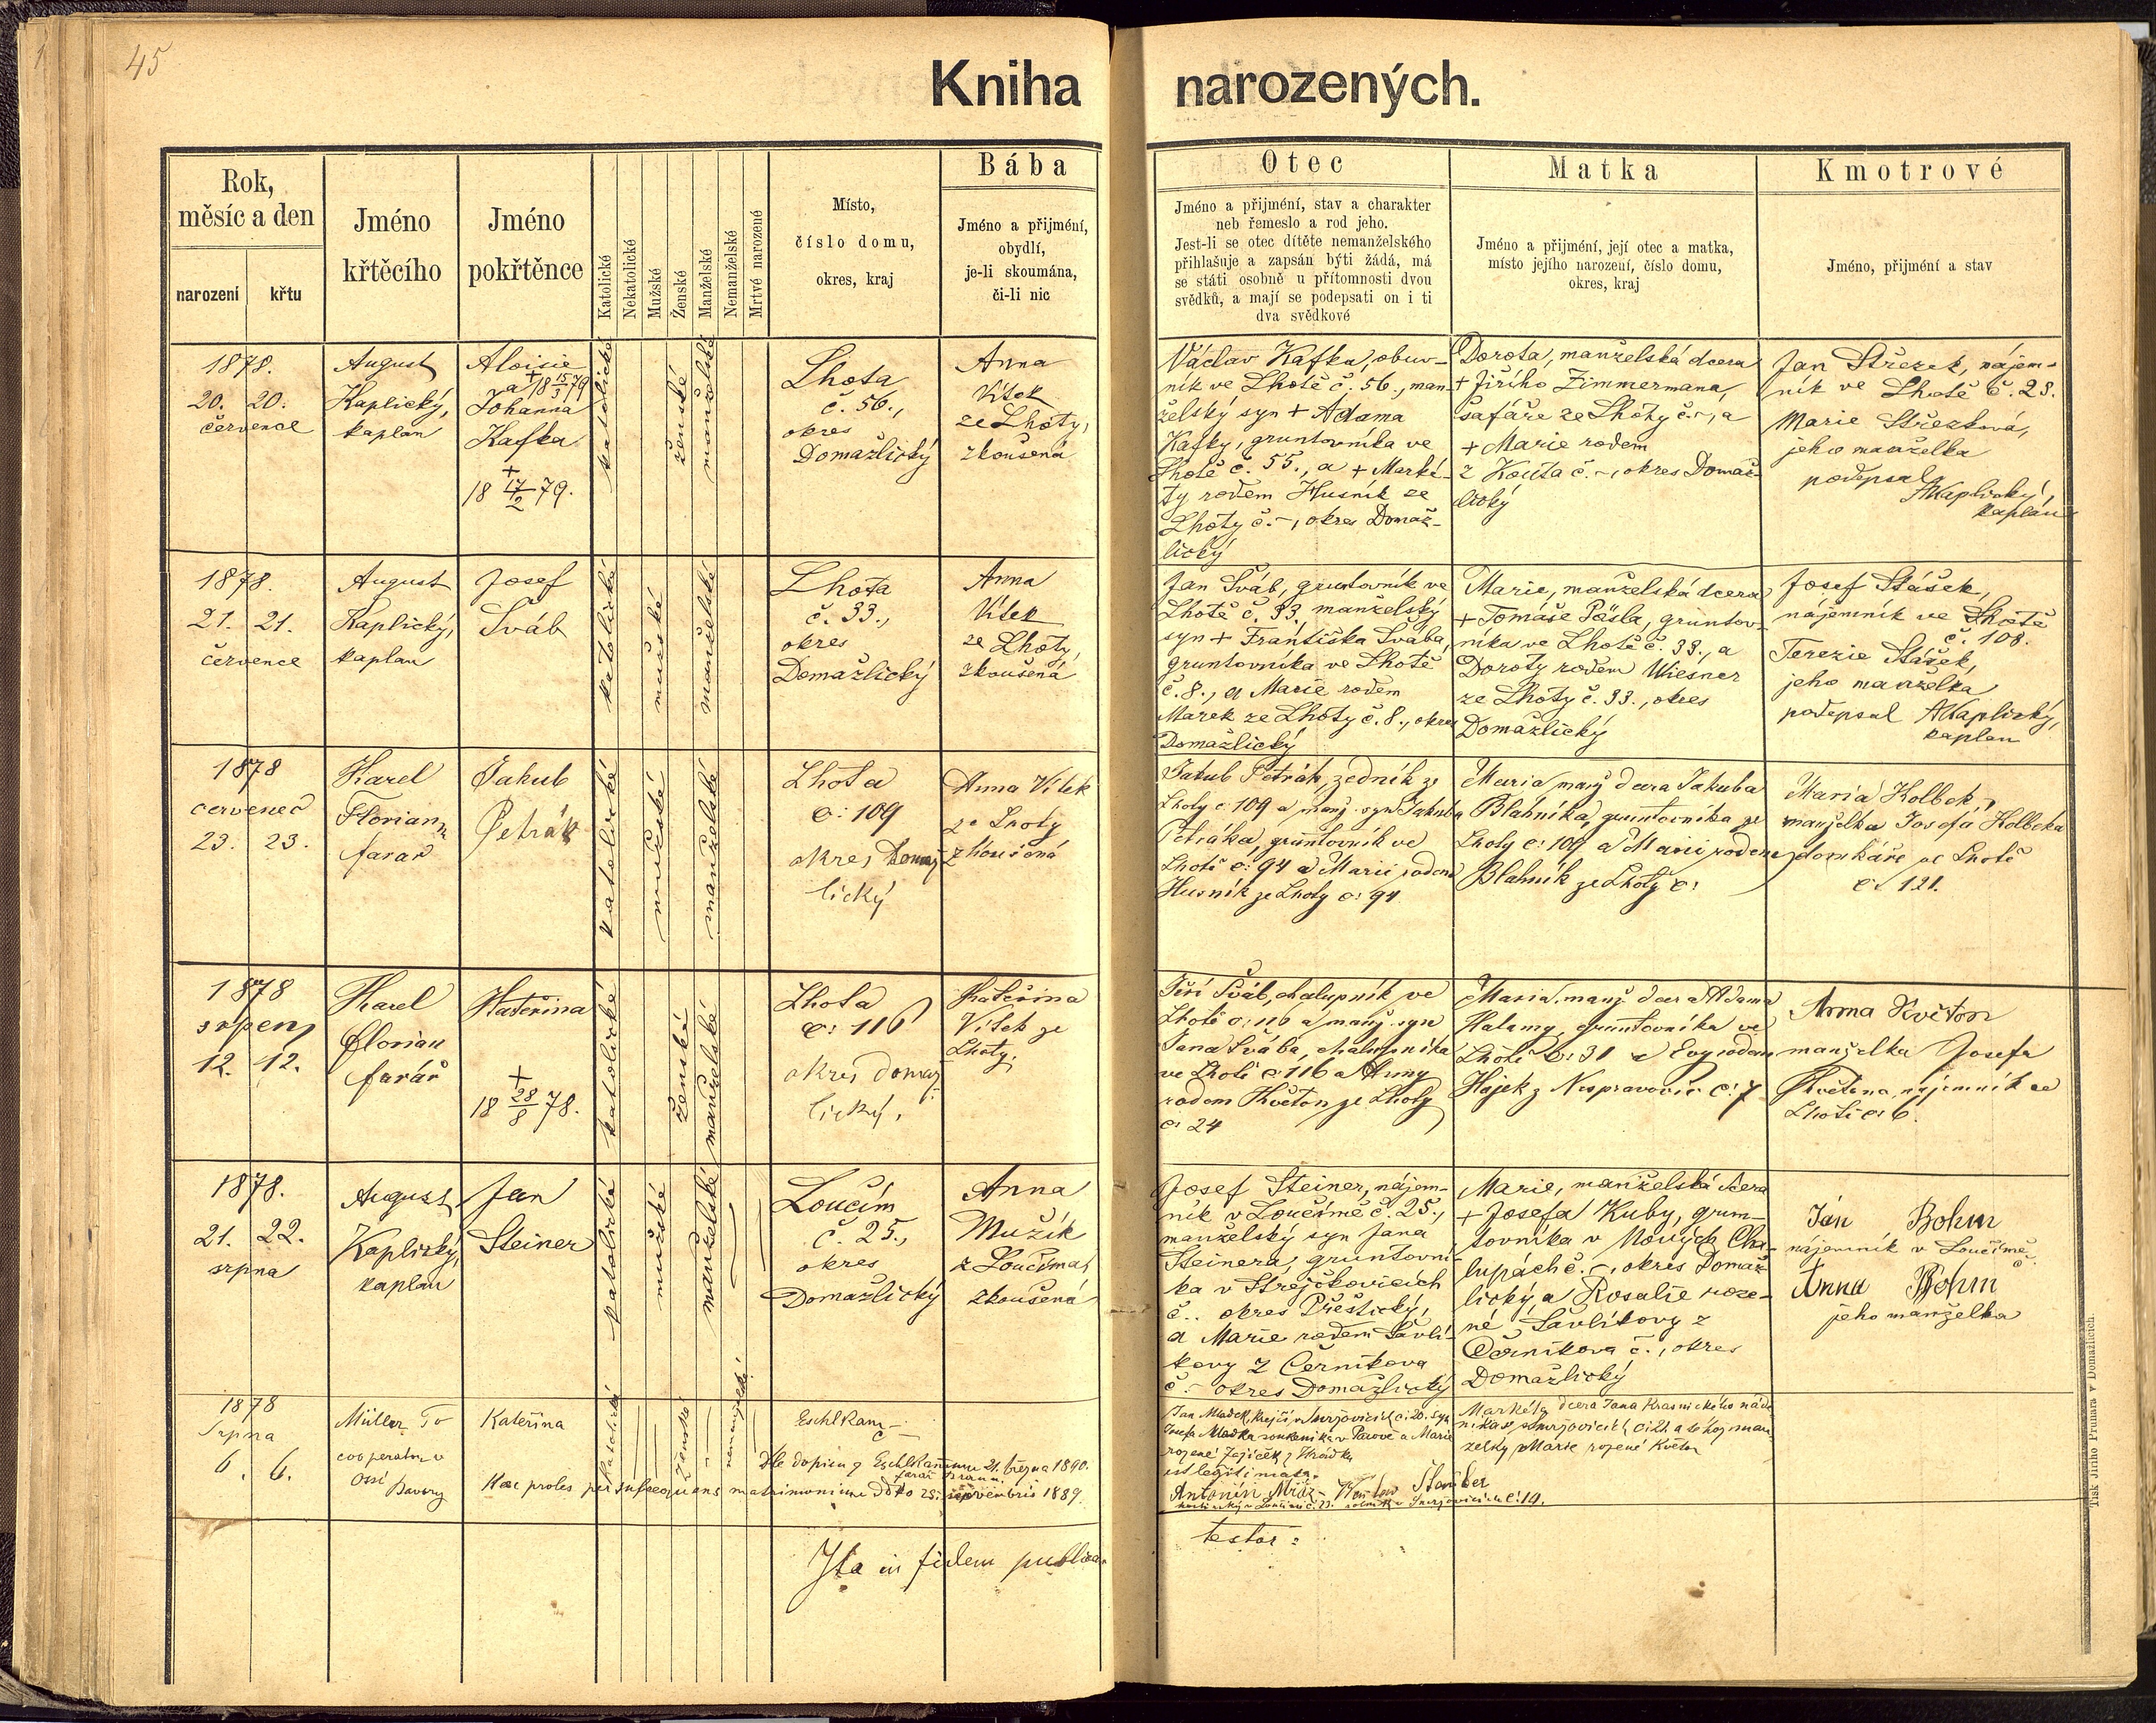 45
Kniha narozených.
Rok,
měsíc a den
narození
křtu
Jméno
křtěcího
Jméno
pokřtěnce
Katolické
Nekatolické
Mužské
Ženské
Manželské
Nemanželské
Mrtvě narozené
Místo,
číslo domu,
okres, kraj
Bába
Jméno a přijmění,
obydlí,
je-li skoumána,
či-li nic
Otec
Jméno a přijmění, stav a charakter
neb řemeslo a rod jeho.
Jest-li se otec dítěte nemanželského
přihlašuje a zapsán býti žádá, má
se státi osobně u přítomnosti dvou
svědků, a mají se podepsati on i ti
dva svědkové
Matka
Jméno a přijmění, její otec a matka,
místo jejího narození, číslo domu,
okres, kraj
Kmotrové
Jméno, přijmění a stav
1878.
20. 20.
července
August
Kaplický,
kaplan
Aloisie
a + 18 15/3 79
Johanna
Kafka
+
18 17/2 79.
katolické
ženské
manželské
Lhota
č. 56.,
okres
Domažlický
Anna
Vítek
ze Lhoty,
zkoušená
Václav Kafka, obuv-
ník ve Lhotě č. 56., man-
želský syn + Adama
Kafky, gruntovníka ve
Lhotě č. 55., a + Marké-
ty rodem Husník ze
Lhoty č. -, okres Domaž-
lický
Dorota, manželská dcera
+ Jiřího Zimmermana,
šafáře ze Lhoty č. -, a
+ Marie rodem
z Kouta č. -, okres Domaž-
lický
Jan Střezek, nájem-
ník ve Lhotě č. 28.
Marie Střezková,
jeho manželka
podepsal
AKaplický,
kaplan
1878.
21. 21.
července
August
Kaplický,
kaplan
Josef
Šváb
katolické
mužské
manželské
Lhota
č. 33.,
okres
Domažlický
Anna
Vítek
ze Lhoty,
zkoušená
Jan Šváb, gruntovník ve
Lhotě č. 33. manželský
syn + Františka Švába,
gruntovníka ve Lhotě
č. 8., a Marie rodem
Marek ze Lhoty č. 8., okres
Domažlický
Marie, manželská dcera
+ Tomáše Pösla, gruntov-
níka ve Lhotě č. 33., a
Doroty rodem Wiesner
ze Lhoty č. 33., okres
Domažlický
Josef Stášek,
nájemník ve Lhotě
č. 108.
Terezie Stášek,
jeho manželka
podepsal AKaplický,
kaplan
1878
červenec
23. 23.
Karel
Florian
farář
Jakub
Petrák
katolické
mužské
manželské
Lhota
č: 109
okres Domaž
lický
Anna Vítek
ze Lhoty
zkoušená
Jakub Petrák, zedník ze
Lhoty č: 109 a manž. syn Jakuba
Petráka, gruntovník ve
Lhotě č: 94 a Marii rodem
Husník ze Lhoty č: 94
Maria manž dcera Jakuba
Blahníka gruntovníka ze
Lhoty č: 109 a Marii rodem
Blahník ze Lhoty č:
Maria Kolbek,
manželka Josefa Kolbeka
domkáře ve Lhotě
č: 121.
1878
srpen
12. 12.
Karel
Florian
farář
Kateřina
+
18 28/8 78.
katolické
ženské
manželské
Lhota
č: 116
okres domaž
lický.
Kateřina
Vítek ze
Lhoty.
Jiří Šváb, chalupník ve
Lhotě č: 116 a manž. syn
Jana Švába, chalupníka
ve Lhotě č: 116 a Anny
rodem Květon ze Lhoty
č: 24
Maria, manž dcera Adama
Halamy, gruntovníka ve
Lhotě č: 31 a Evy rodem
Hájek z Nespravovic č: 7
Anna Květon
manželka Josefa
Května, nájemník ve
Lhotě č: 6.
1878.
21. 22.
srpna
August
Kaplický,
kaplan
Jan
Steiner
katolické
mužské
manželské
Loučím
č. 25.,
okres
Domažlický
Anna
Mužík
z Loučíma,
zkoušená
Josef Steiner, nájem-
ník v Loučímě č. 25.,
manželský syn Jana
Steinera, gruntovní-
ka v Strejčkovicích
č.. okres Přeštický,
a Marie rodem Šavlí-
kovy z Černíkova
č. - okres Domažlický
Marie, manželská dcera
+ Josefa Kuby, grun-
tovníka v Nových Cha-
lupách č. -, okres Domaž-
lický a Rosalie roze-
né Šavlíkovy z
Černíkova č., okres
Domažlický
Ján Böhm
nájemník v Loučímě
č.
Anna Böhm
jeho manželka
1878
Srpna
6. 6.
Müller
cooperator
Kateřina
katolické
ženské
nemanželské
Eschlkam
č —
Dle dopisu z Eschlkammu 21. března 1890.
Haec proles per subsequens matrimonium ddto 25. novembris 1889.
est legitimata.
Jan Mladek, krejčí v Smržovicích č: 20. syn
Josefa Mladka soukeníka v a Marie
rozené Zajíček z Hrádku
Antonín Mráz
Václav Stauber
Markéta dcera Jana Krasnického náde-
níka v Smržovicích č: 21. a téhož man-
želky Marie rozené Květon
Ita in fidem publicam
testor:
Tisk Jiřího Prunara v Domažlicích.